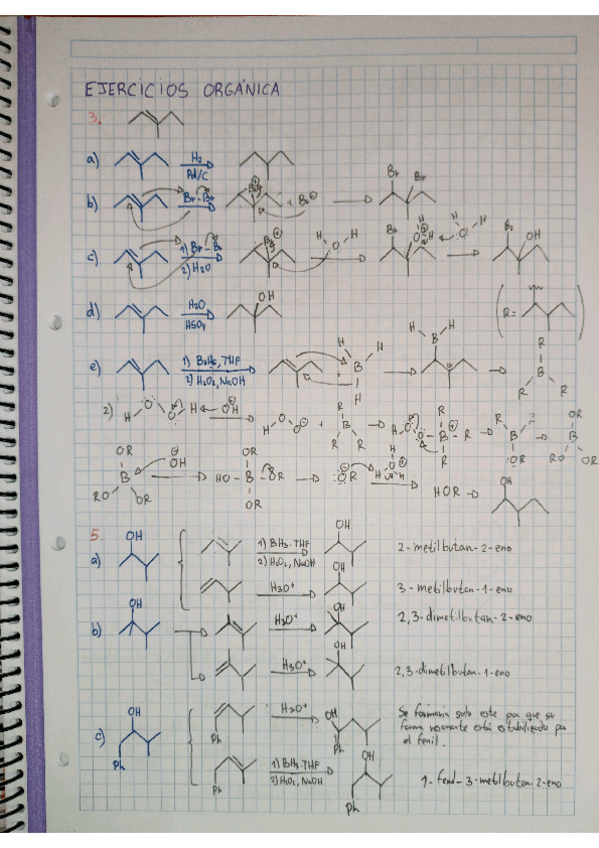 EJERCICIOS ORGÁNICA
3.
a) H2
Pd/C
b) Br-Br Br⊕ + Br⊖ Br Br
c) 1) Br-Br
2) H2O Br⊕ H O H Br H O⊕ H H O H Br OH
d) H2O
H2SO4 OH
R=
e) 1) B2H6, THF
2) H2O2, NaOH H B H H H B H R B R R
2) H O O H ⊖OH H O O⊖ + R B R R H O O B⊕ R R R R B R OR OR B OR R
OR B RO OR ⊖OH OR HO B OR OR ⊖OR H O⊕ H H HOR OH
5.
a) OH 1) BH3·THF
2) H2O2, NaOH OH 2-metilbutan-2-eno
H3O+ OH 3-metilbutan-1-eno
b) OH H3O+ OH 2,3-dimetilbutan-2-eno
H3O+ OH 2,3-dimetilbutan-1-eno
c) OH Ph Ph H3O+ OH Ph Se formaria solo este por que su
forma resonante está estabilizado por
el fenil.
Ph 1) BH3·THF
2) H2O2, NaOH OH Ph 1-fenil-3-metilbutan-2-eno